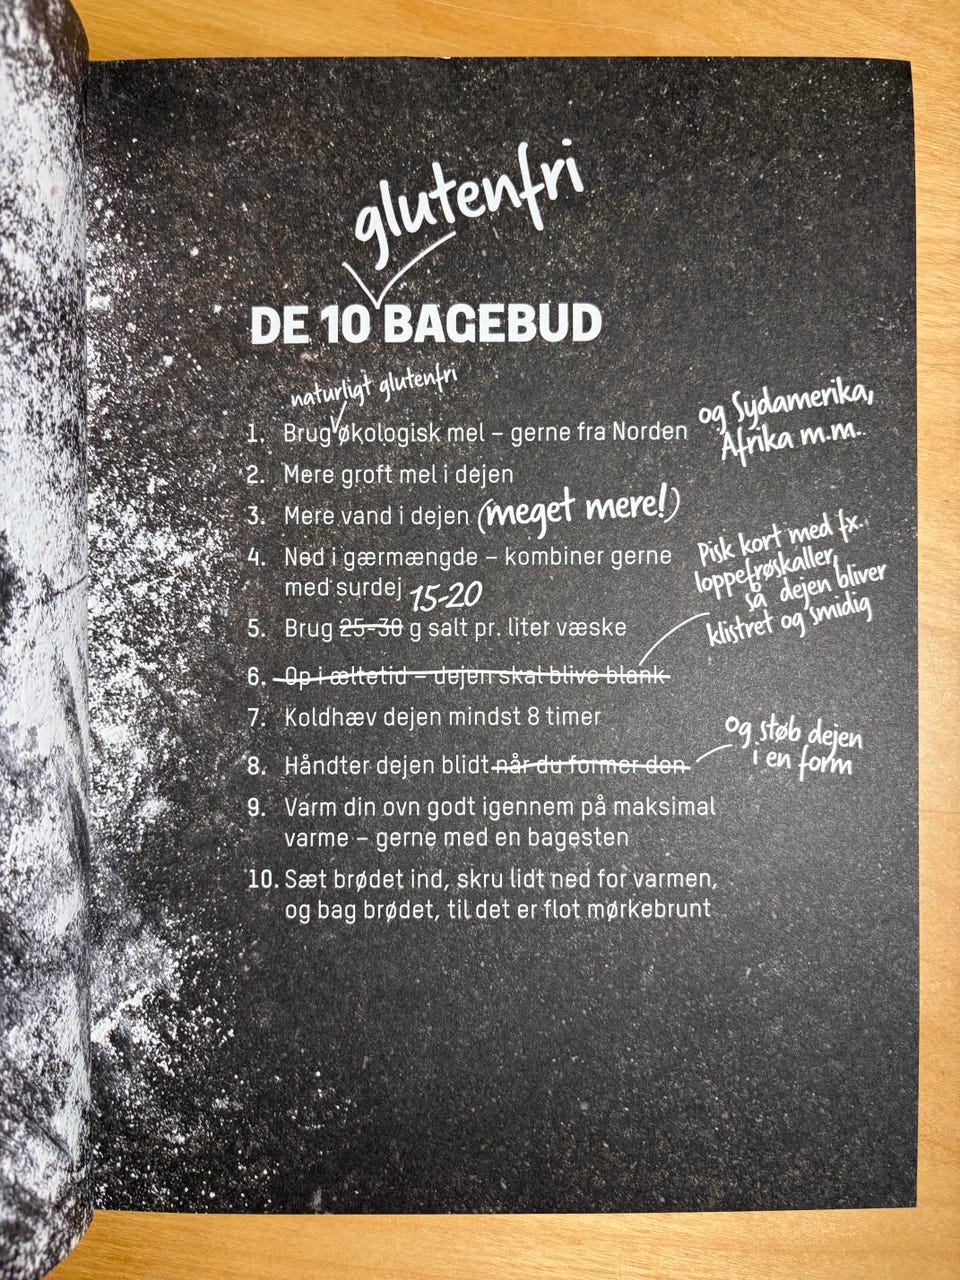 glutenfri
DE 10 BAGEBUD
naturligt glutenfri
1. Brug økologisk mel – gerne fra Norden
og Sydamerika,
Afrika m.m..
2. Mere groft mel i dejen
3. Mere vand i dejen (meget mere!)
4. Ned i gærmængde – kombiner gerne
med surdej
15-20
5. Brug 25-30 g salt pr. liter væske
Pisk kort med fx.
loppefrøskaller,
så dejen bliver
klistret og smidig
6. Op i æltetid – dejen skal blive blank
7. Koldhæv dejen mindst 8 timer
og støb dejen
i en form
8. Håndter dejen blidt når du former den
9. Varm din ovn godt igennem på maksimal
varme – gerne med en bagesten
10. Sæt brødet ind, skru lidt ned for varmen,
og bag brødet, til det er flot mørkebrunt